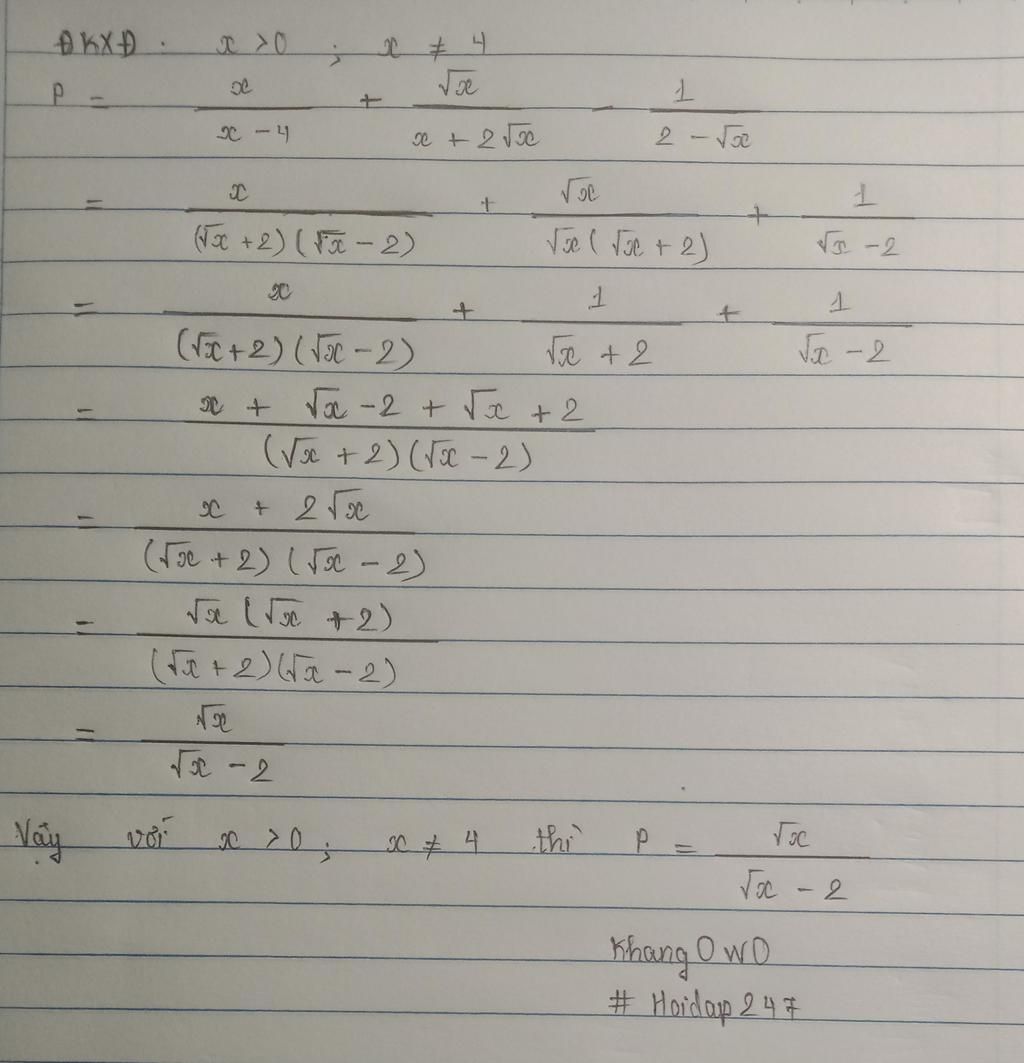 ĐKXĐ : x > 0 ; x ≠ 4
P = x/(x - 4) + √x/(x + 2√x) - 1/(2 - √x)
= x/((√x + 2)(√x - 2)) + √x/(√x(√x + 2)) + 1/(√x - 2)
= x/((√x + 2)(√x - 2)) + 1/(√x + 2) + 1/(√x - 2)
= (x + √x - 2 + √x + 2)/((√x + 2)(√x - 2))
= (x + 2√x)/((√x + 2)(√x - 2))
= √x(√x + 2)/((√x + 2)(√x - 2))
= √x/(√x - 2)
Vậy với x > 0 ; x ≠ 4 thì P = √x/(√x - 2)
Khang OwO
# Hoidap247